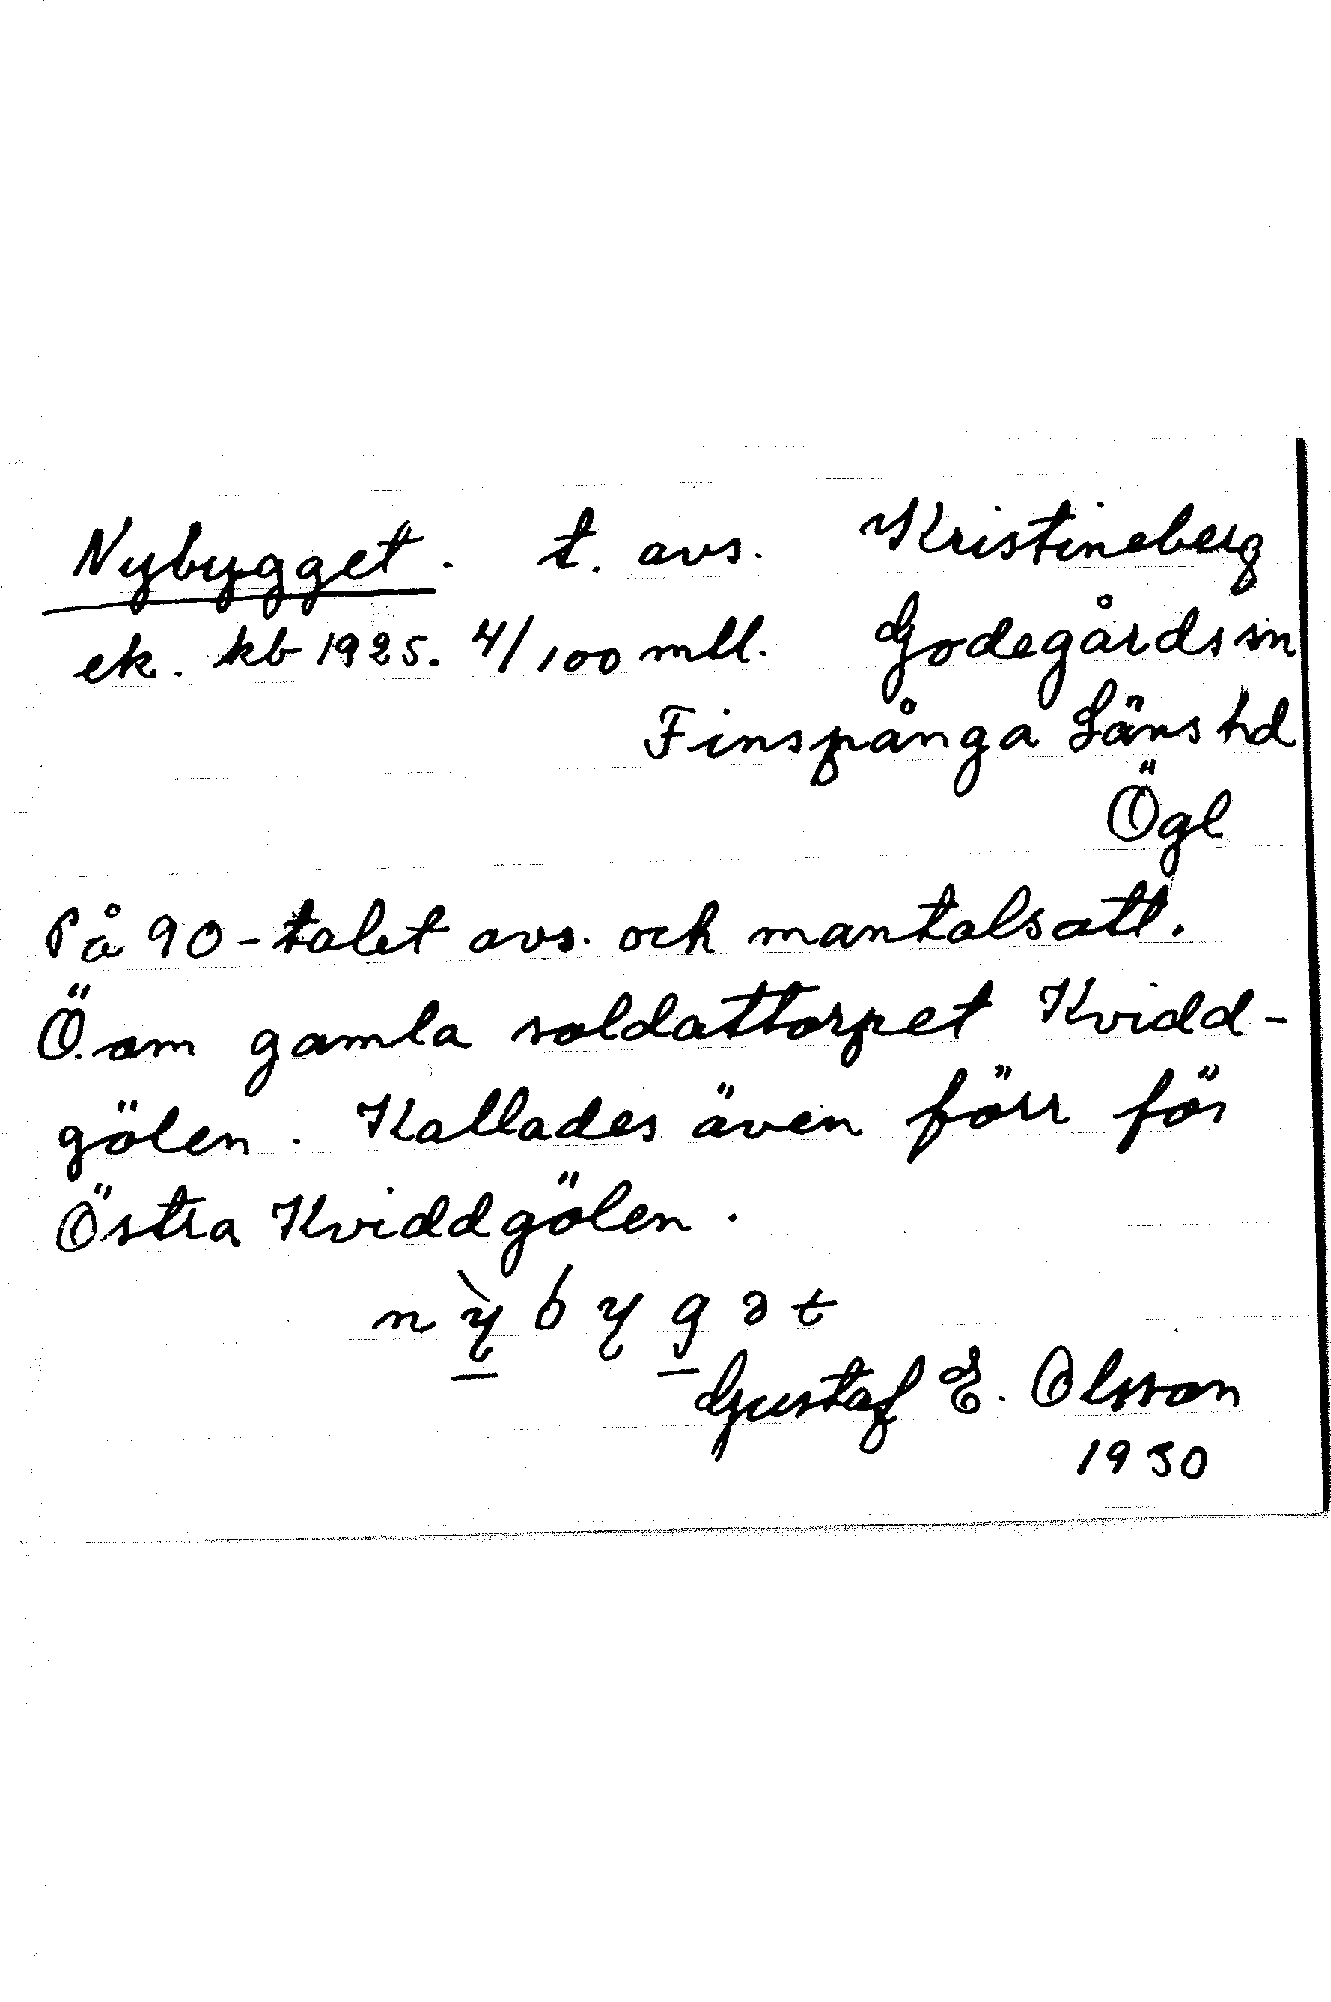 Nybygget. t. avs. Kristineberg
ek. kb 1925. 4/100 mtl. Godegårds sn
Finspånga Läns hd
Ögl
På 90-talet avs. och mantalsatt.
Ö. om gamla soldattorpet Kvidd-
gölen. Kallades även förr för
Östra Kviddgölen.
n ỳ b y g ə t
Gustaf E. Olsson
1930